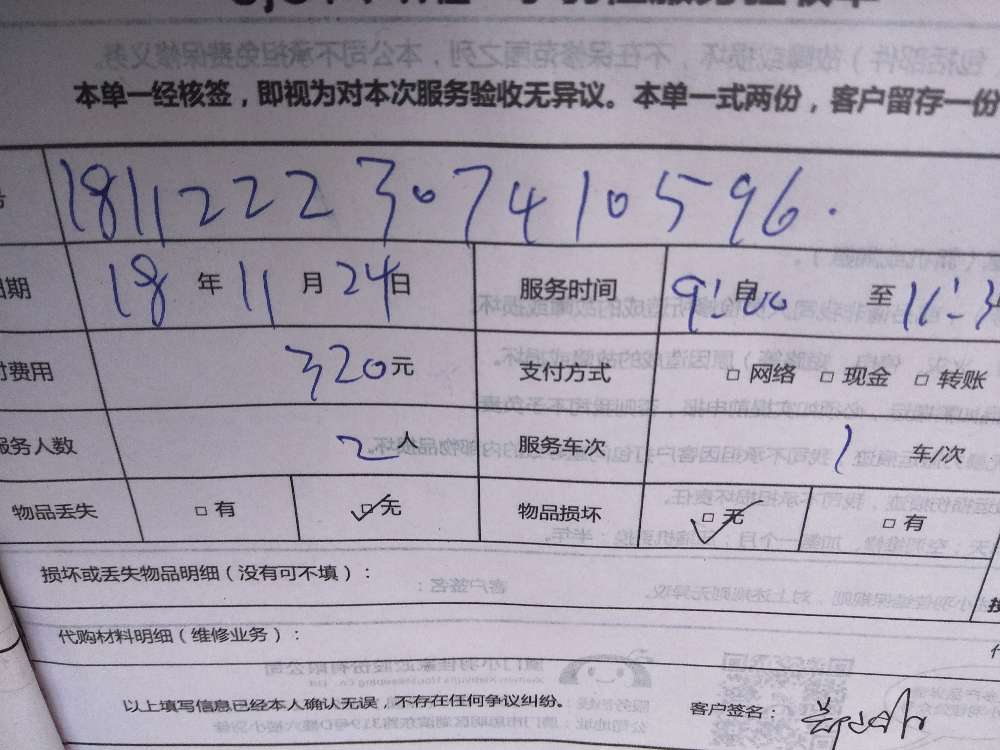 本单一经核签，即视为对本次服务验收无异议。本单一式两份，客户留存一份
1811222307410596.
日期 18年11月24日 服务时间 自9:00 至11:3
付费用 320元 支付方式 □网络 □现金 □转账
服务人数 2人 服务车次 1车/次
物品丢失 □有 □无 物品损坏 □无 □有
损坏或丢失物品明细（没有可不填）：
代购材料明细（维修业务）：
以上填写信息已经本人确认无误，不存在任何争议纠纷。 客户签名：